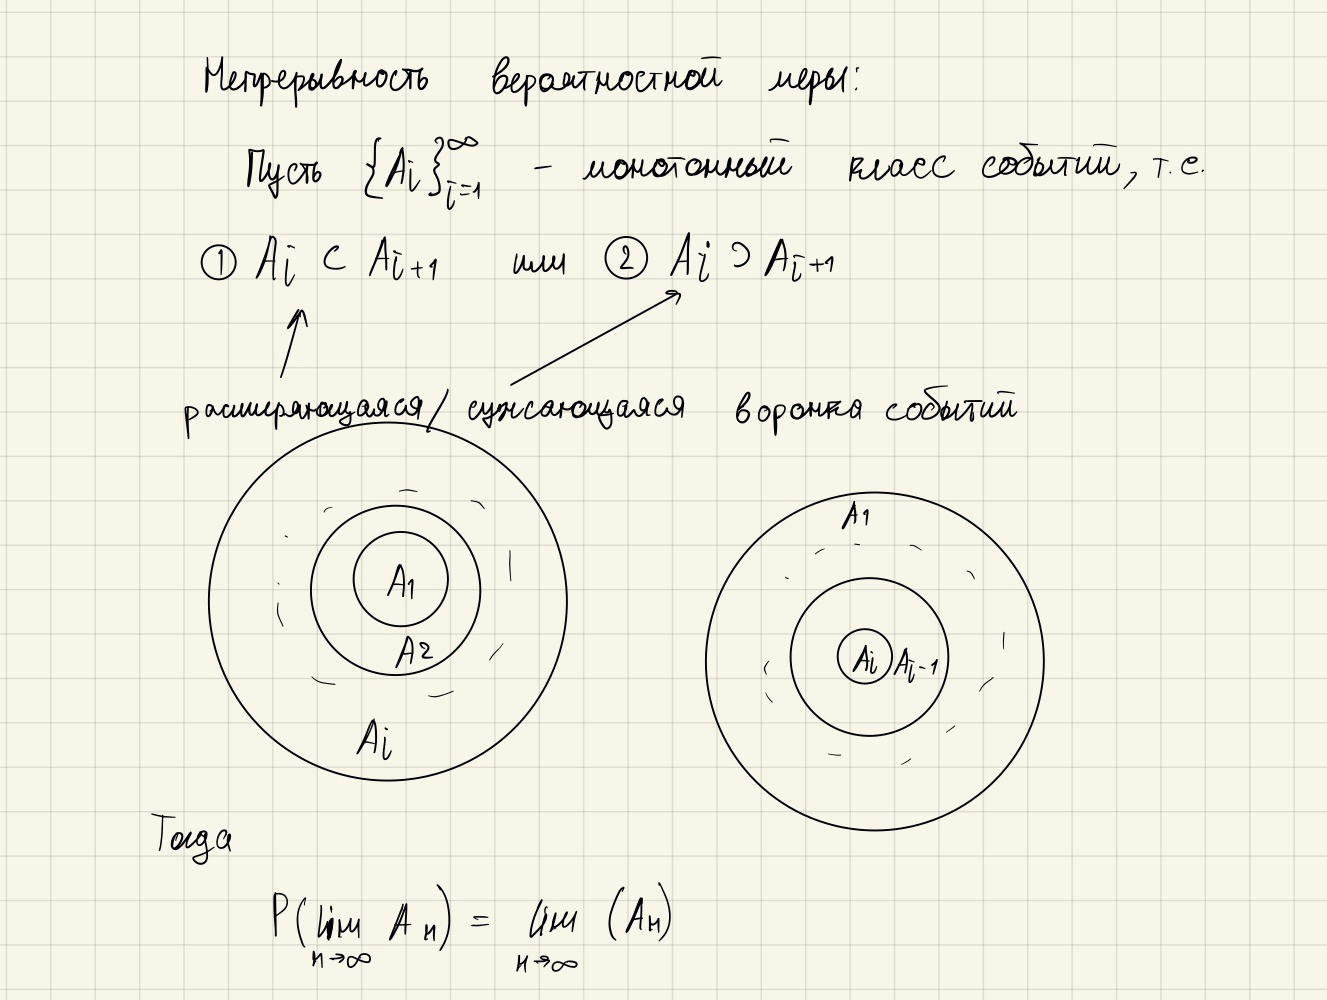 Непрерывность вероятностной меры:
Пусть {Ai}∞i=1 – монотонный класс событий, т.е.
① Ai ⊂ Ai+1 или ② Ai ⊃ Ai+1
расширяющаяся/сужающаяся воронка событий
A1
A2
Ai
A1
Ai Ai-1
Тогда
P(lim An) = lim (An)
n→∞ n→∞